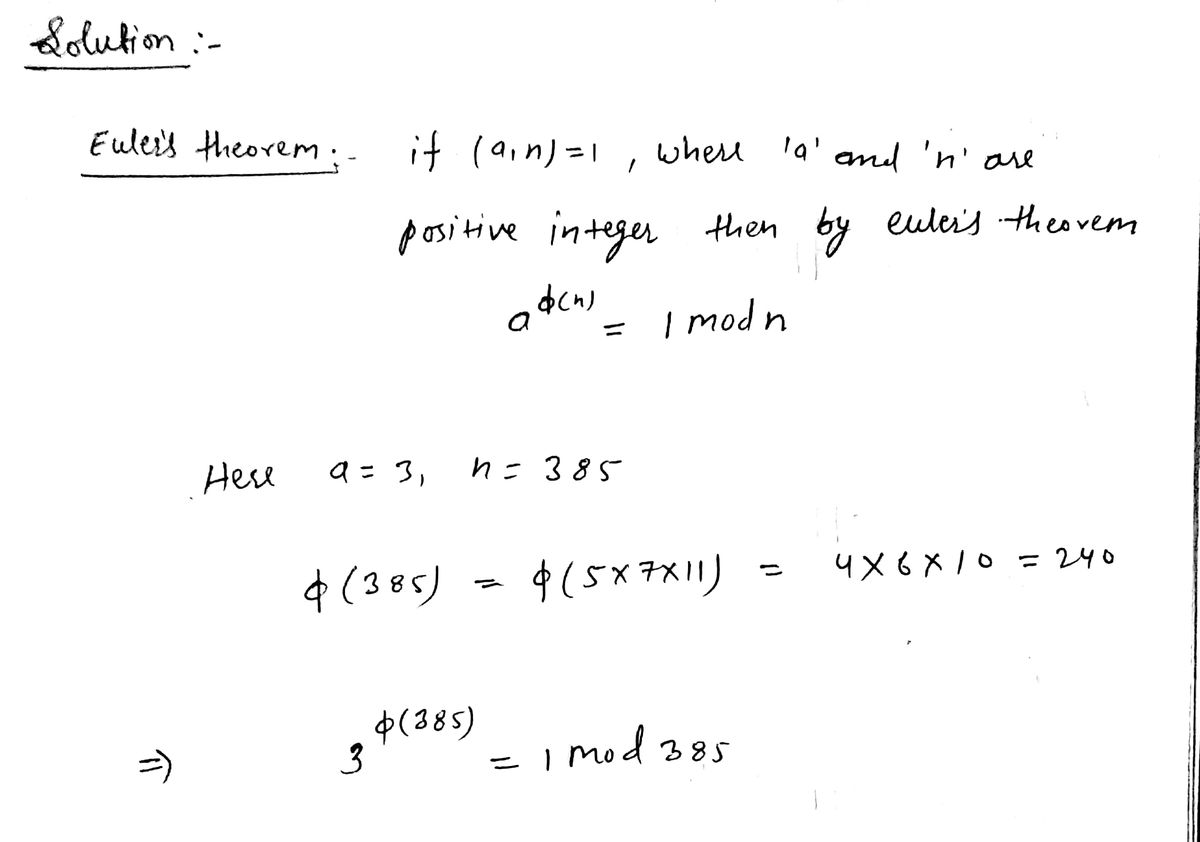 Solution :-
Euler's theorem :- if (a,n)=1 , where 'a' and 'n' are
positive integer then by euler's theorem
a^ϕ(n) = 1 mod n
Here a = 3, n = 385
ϕ(385) = ϕ(5×7×11) = 4×6×10 = 240
⇒ 3^ϕ(385) = 1 mod 385